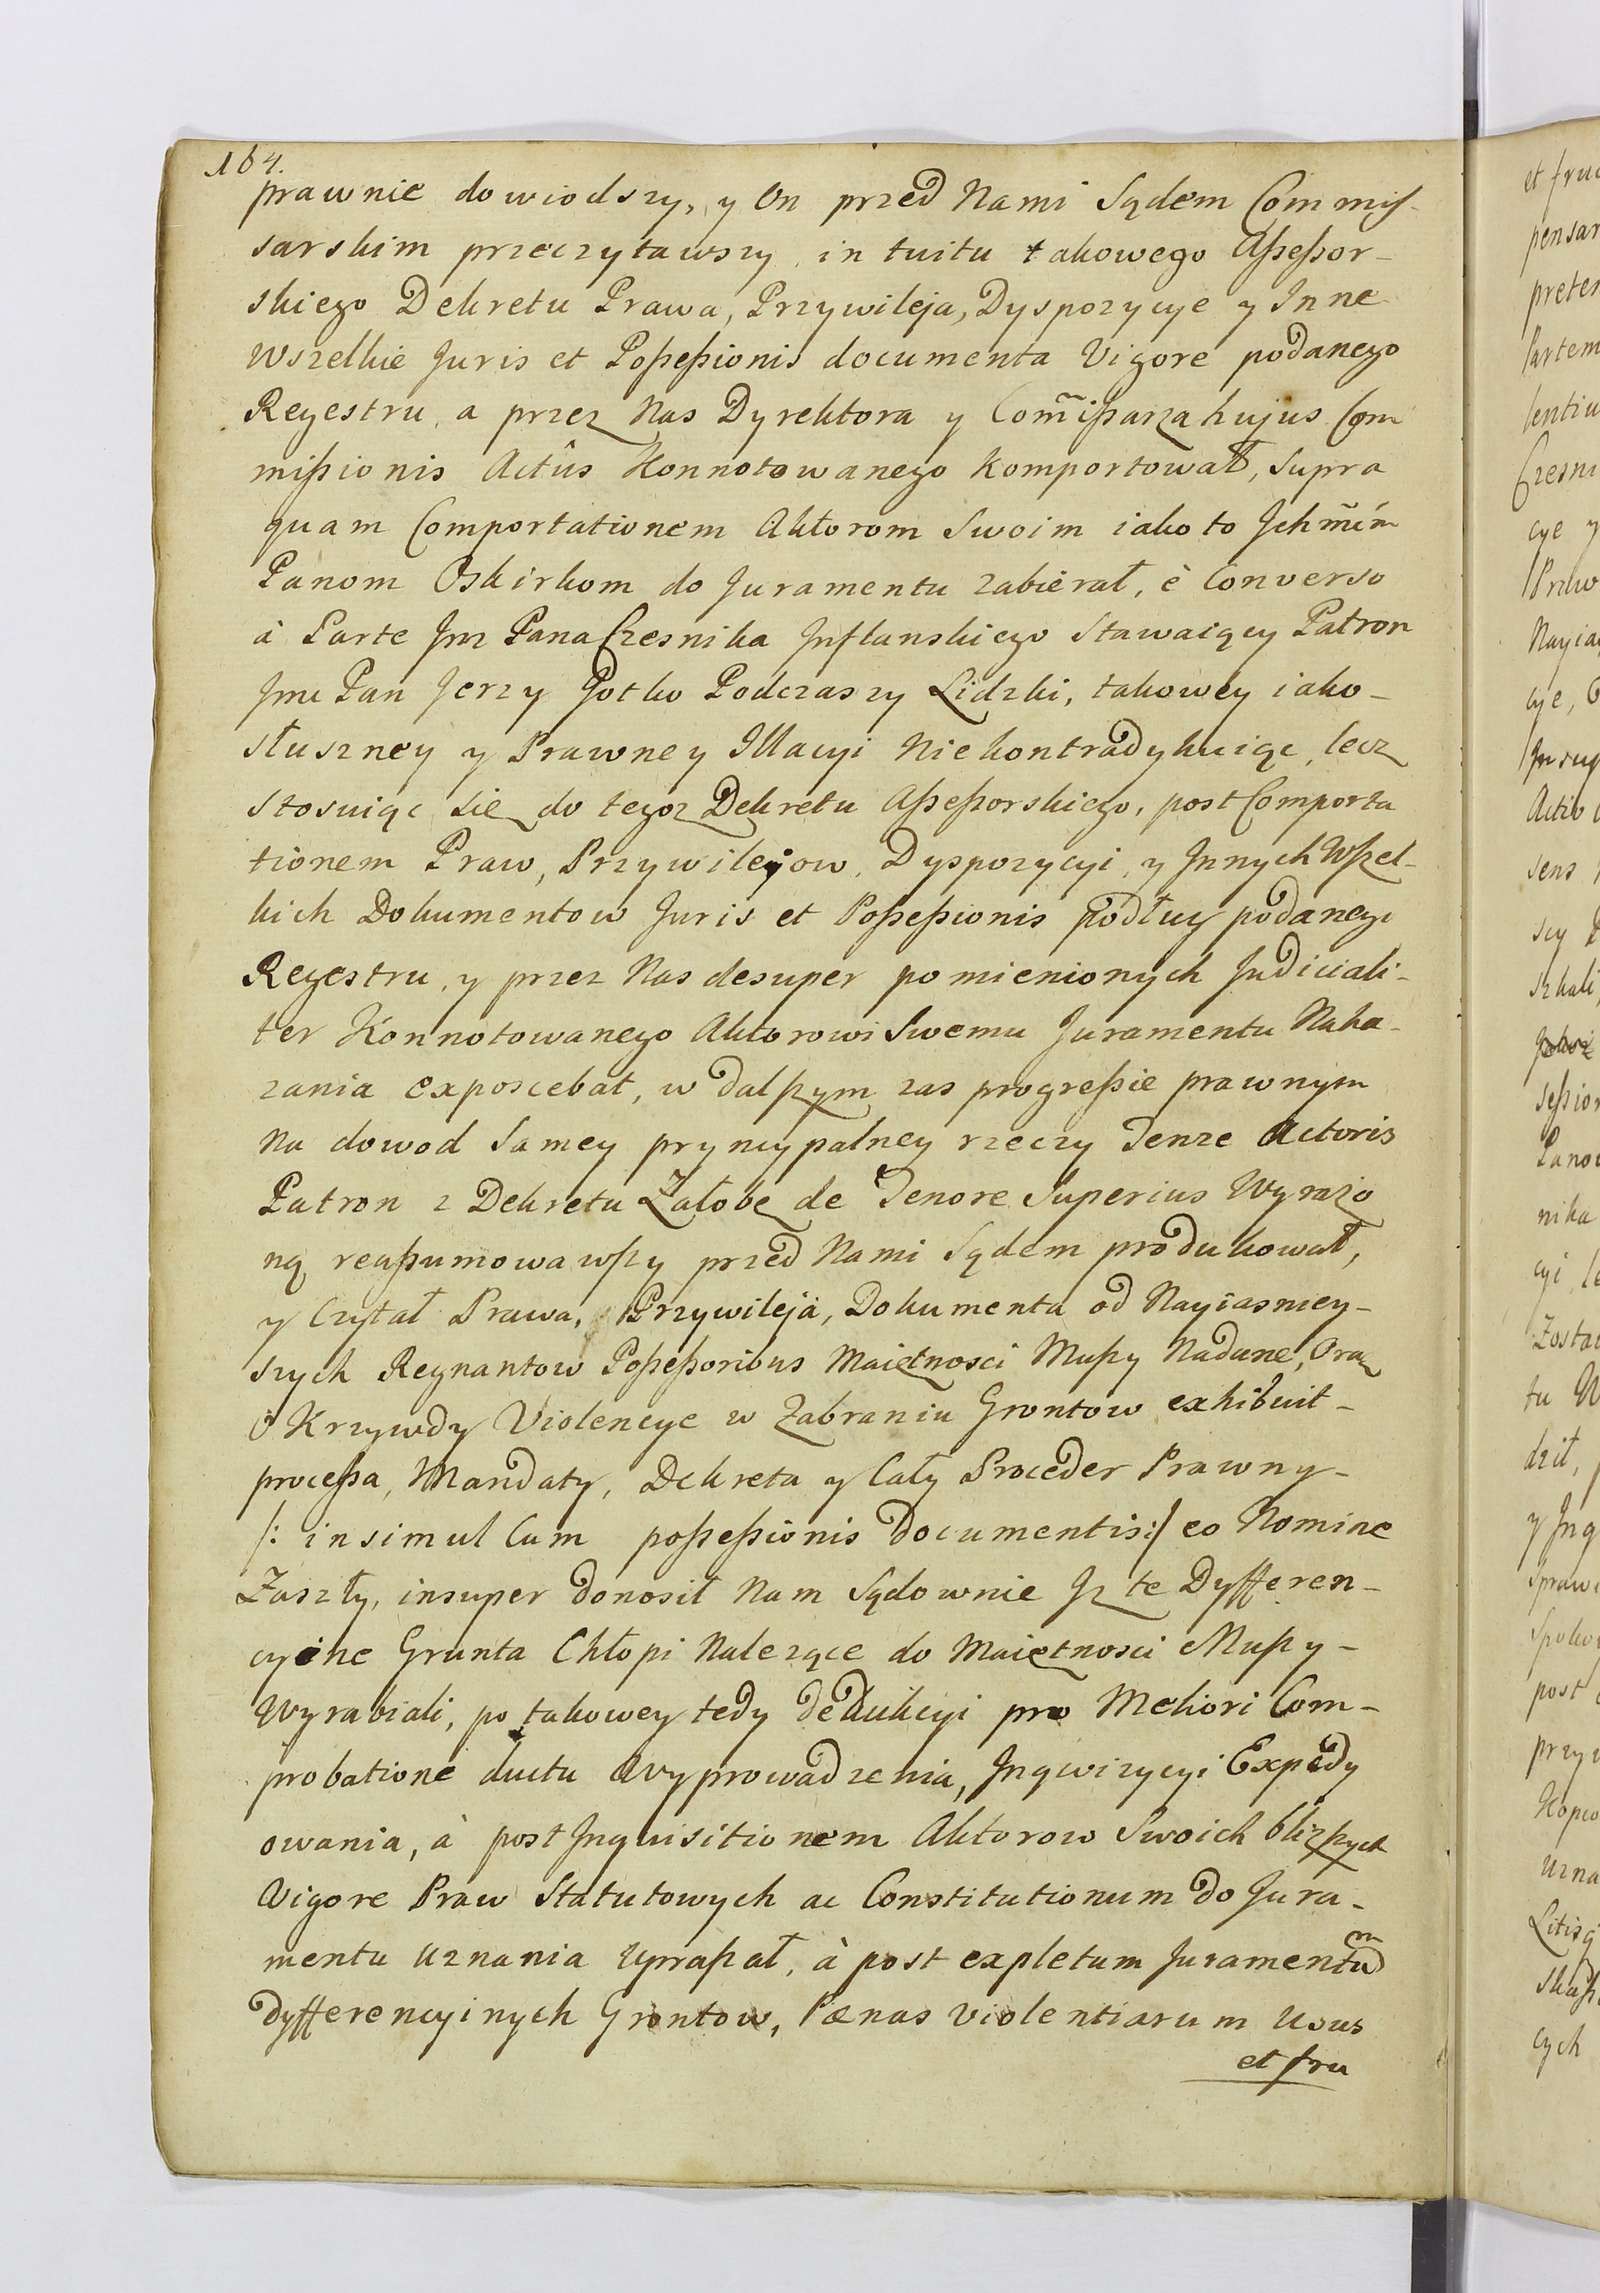 164.
prawnie dowiodszy, y On przed Nami Sądem Commis-
sarskim przeczytawszy, in tuitu takowego Aßeßor-
skiego Dekretu Prawa, Przywileja, Dyspozycye y Inne
Wszelkie Juris et Poßeßionis documenta Vigore podanego
Reyestru, a przez Nas Dyrektora y Com̃ißarza hujus Com
mißionis Actûs Konnotowanego Komportował, Supra
quam Comportationem Aktorom Swoim iako to Jchm̃ćm
Panom Oskirkom do Juramentu zabierał, è Converso
à Parte Jmz Pana Czesnika Jnflanskiego Stawaiący Patron
Jmc Pan Jerzy Gotko Podczaszy Lidzki, takowey iako-
słuszney y Prawney Illacyi Niekontradykuiąc, lecz
Stosuiąc Się do tegoz Dekretu Aßeßorskiego, post Comporta
tionem Praw, Przywilejow, Dyspozycyi, y Jnnych Wszel-
kich Dokumentow Juris et Poßeßionis podług podanego
Regestru, y przez Nas desuper pomienionych Judiciali-
ter Konnotowanego Aktorowi Swemu Juramentu Naka-
zania exposcebat, w dalszym zas progreßie prawnym
Na dowod Samey pryncypalney rzeczy Tenze Actoris
Patron z Dekretu Załobę de Tenore Superius Wyrazo
ną reaßumowawszy przed Nami Sądem produkował,
y Czytał Prawa, Przywileja, Dokumenta od Nayiasniey-
szych Regnantow Poßeßoribus Maiętnosci Muszy Nadane, Oraz
o Krzywdy Violencye w Zabraniu Grontow exhibuit-
proceßa, Mandaty, Dekreta y Cały Proceder Prawny-
/: insimul Cum poßeßionis documentis:/ eo Nomine
Zaszły, insuper donosił Nam Sądownie Jz te Dyfferen-
cyine Grunta Chłopi Nalezące do Maiętnosci Muszy-
Wyrabiali, po takowey tedy dedukcyi pro Meliori Com-
probatione ductu Wyprowadzenia, Jnqwizycyi Expedy
owania, à post Jnquisitionem Aktorow Swoich bliszych
Vigore Praw Statutowych ac Constitutionum do Jura-
mentu Uznania Upraszał, à post expletum Juramentum
dyfferencyinych Grontow, Pænas violentiarum Usus
et fru